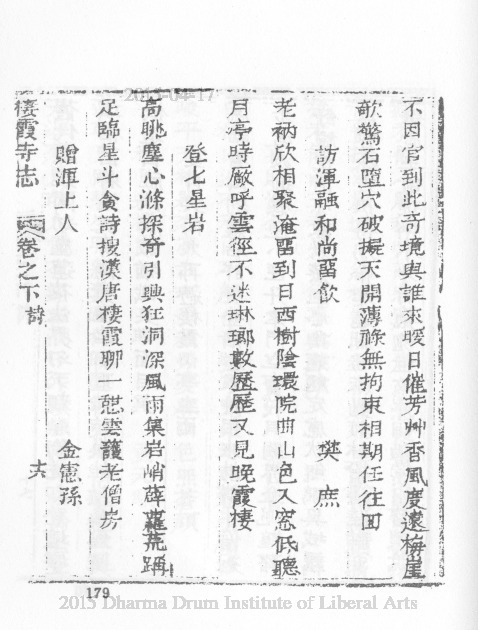 不因官到此奇境與誰來暖日催芳艸香風度遠梅崖
欹驚石墮穴破擬天開薄祿無拘束相期任往回
訪渾融和尚留飲 樊庶
老衲欣相聚淹留到日西樹陰環院曲山色入窓低聽
月亭時敞呼雲徑不迷琳瑯數歷歷又見晚霞棲
登七星岩
高眺塵心滌探奇引興狂洞深風雨集岩峭薜蘿荒躋
足臨星斗食詩搜漢唐棲霞聊一憇雲護老僧房
贈渾上人 金憲孫
棲霞寺志 卷之下 詩 十六
179
2015-04-17
2015 Dharma Drum Institute of Liberal Arts